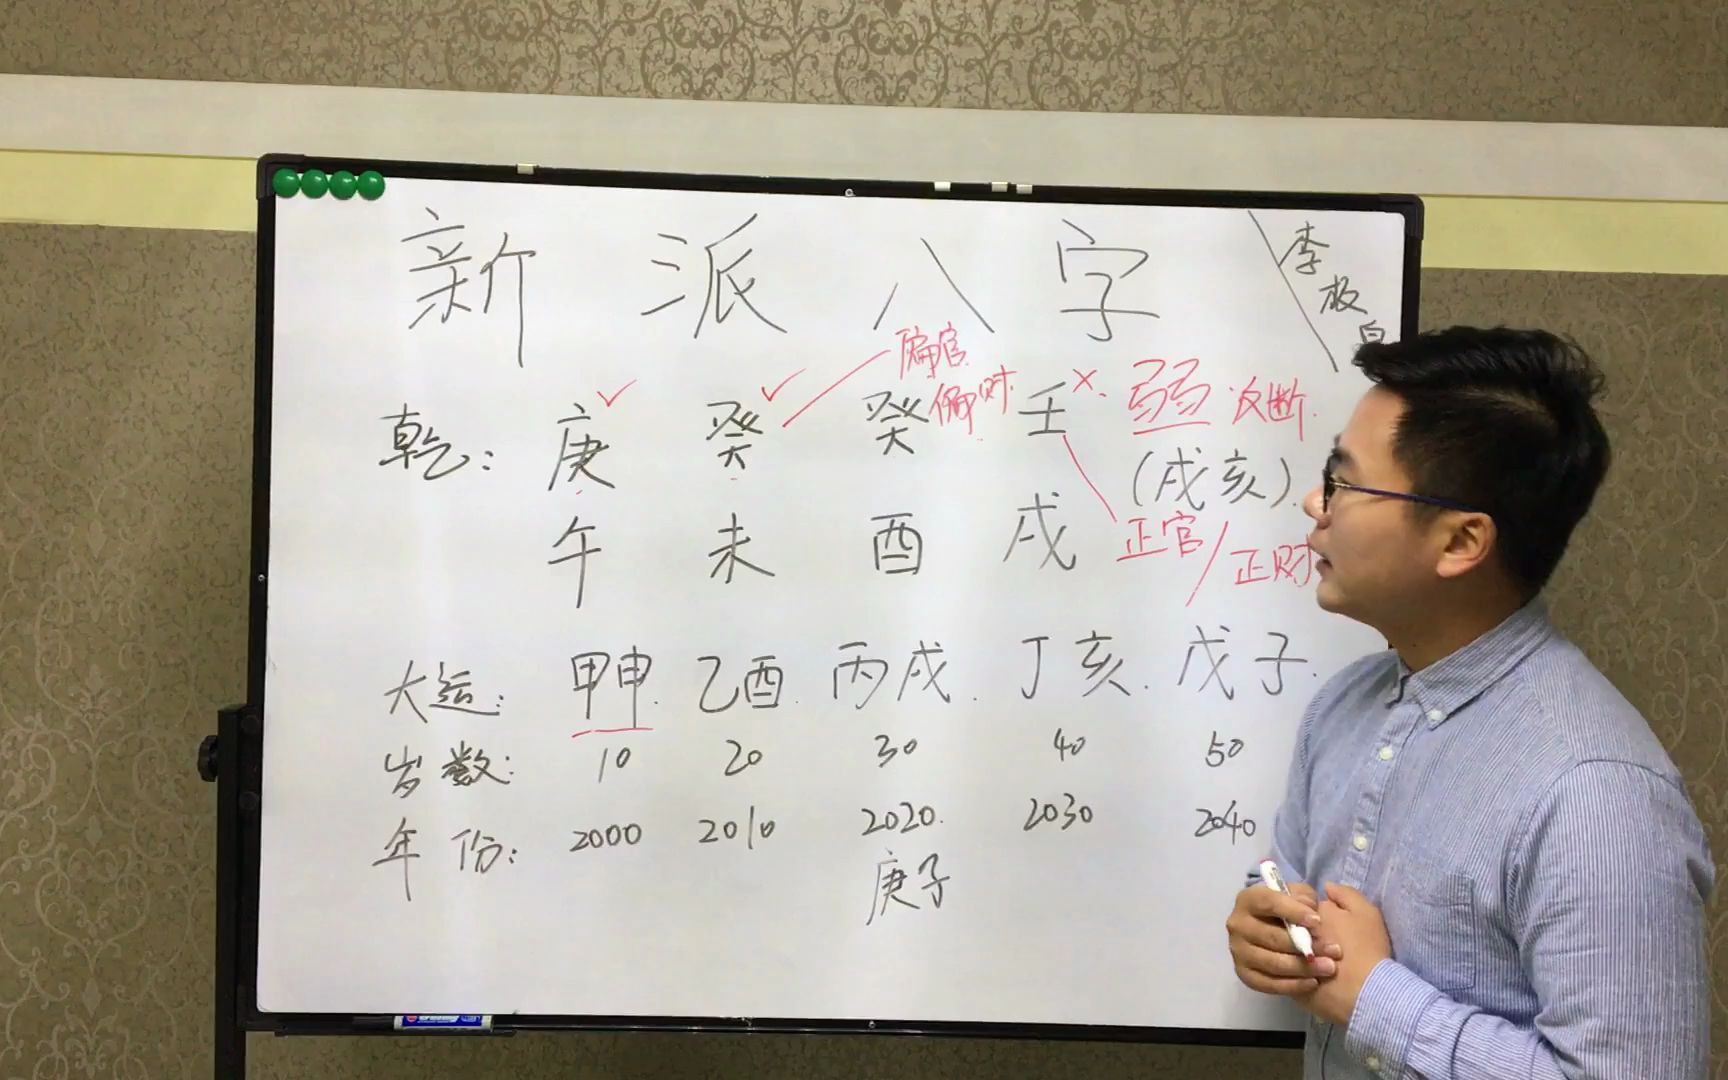 新派八字
李极
乾：庚 癸 癸 壬 (戌亥)
偏官
偏财
× 弱 反断
午 未 酉 戌
正官/正财
大运：甲申 乙酉 丙戌 丁亥 戊子
岁数：10 20 30 40 50
年份：2000 2010 2020 2030 2040
庚子